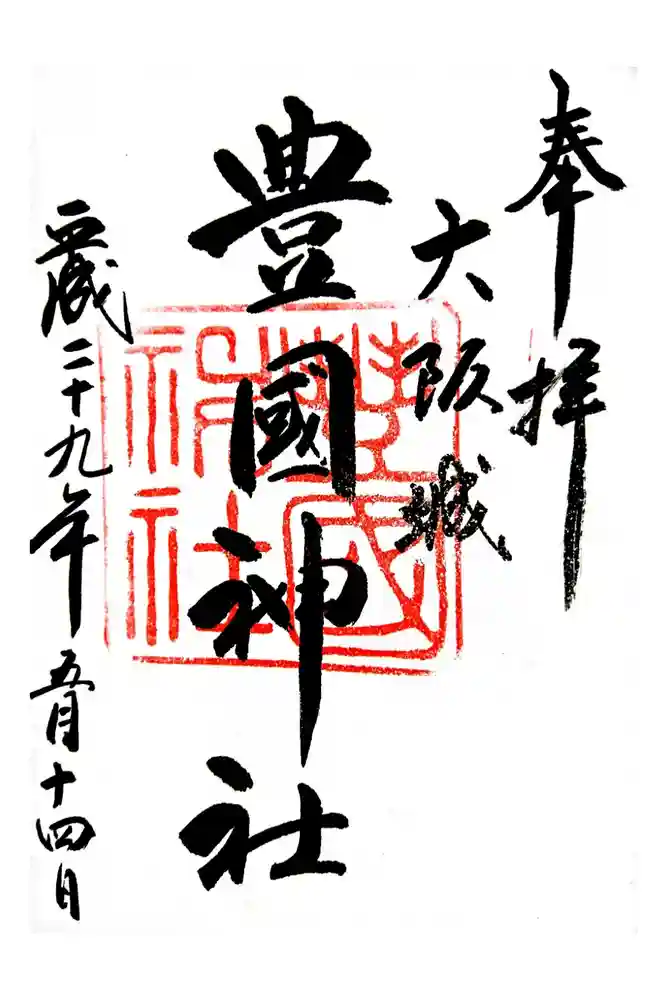 奉拝
大阪城
豊國神社
平成二十九年五月十四日
豊國
神社